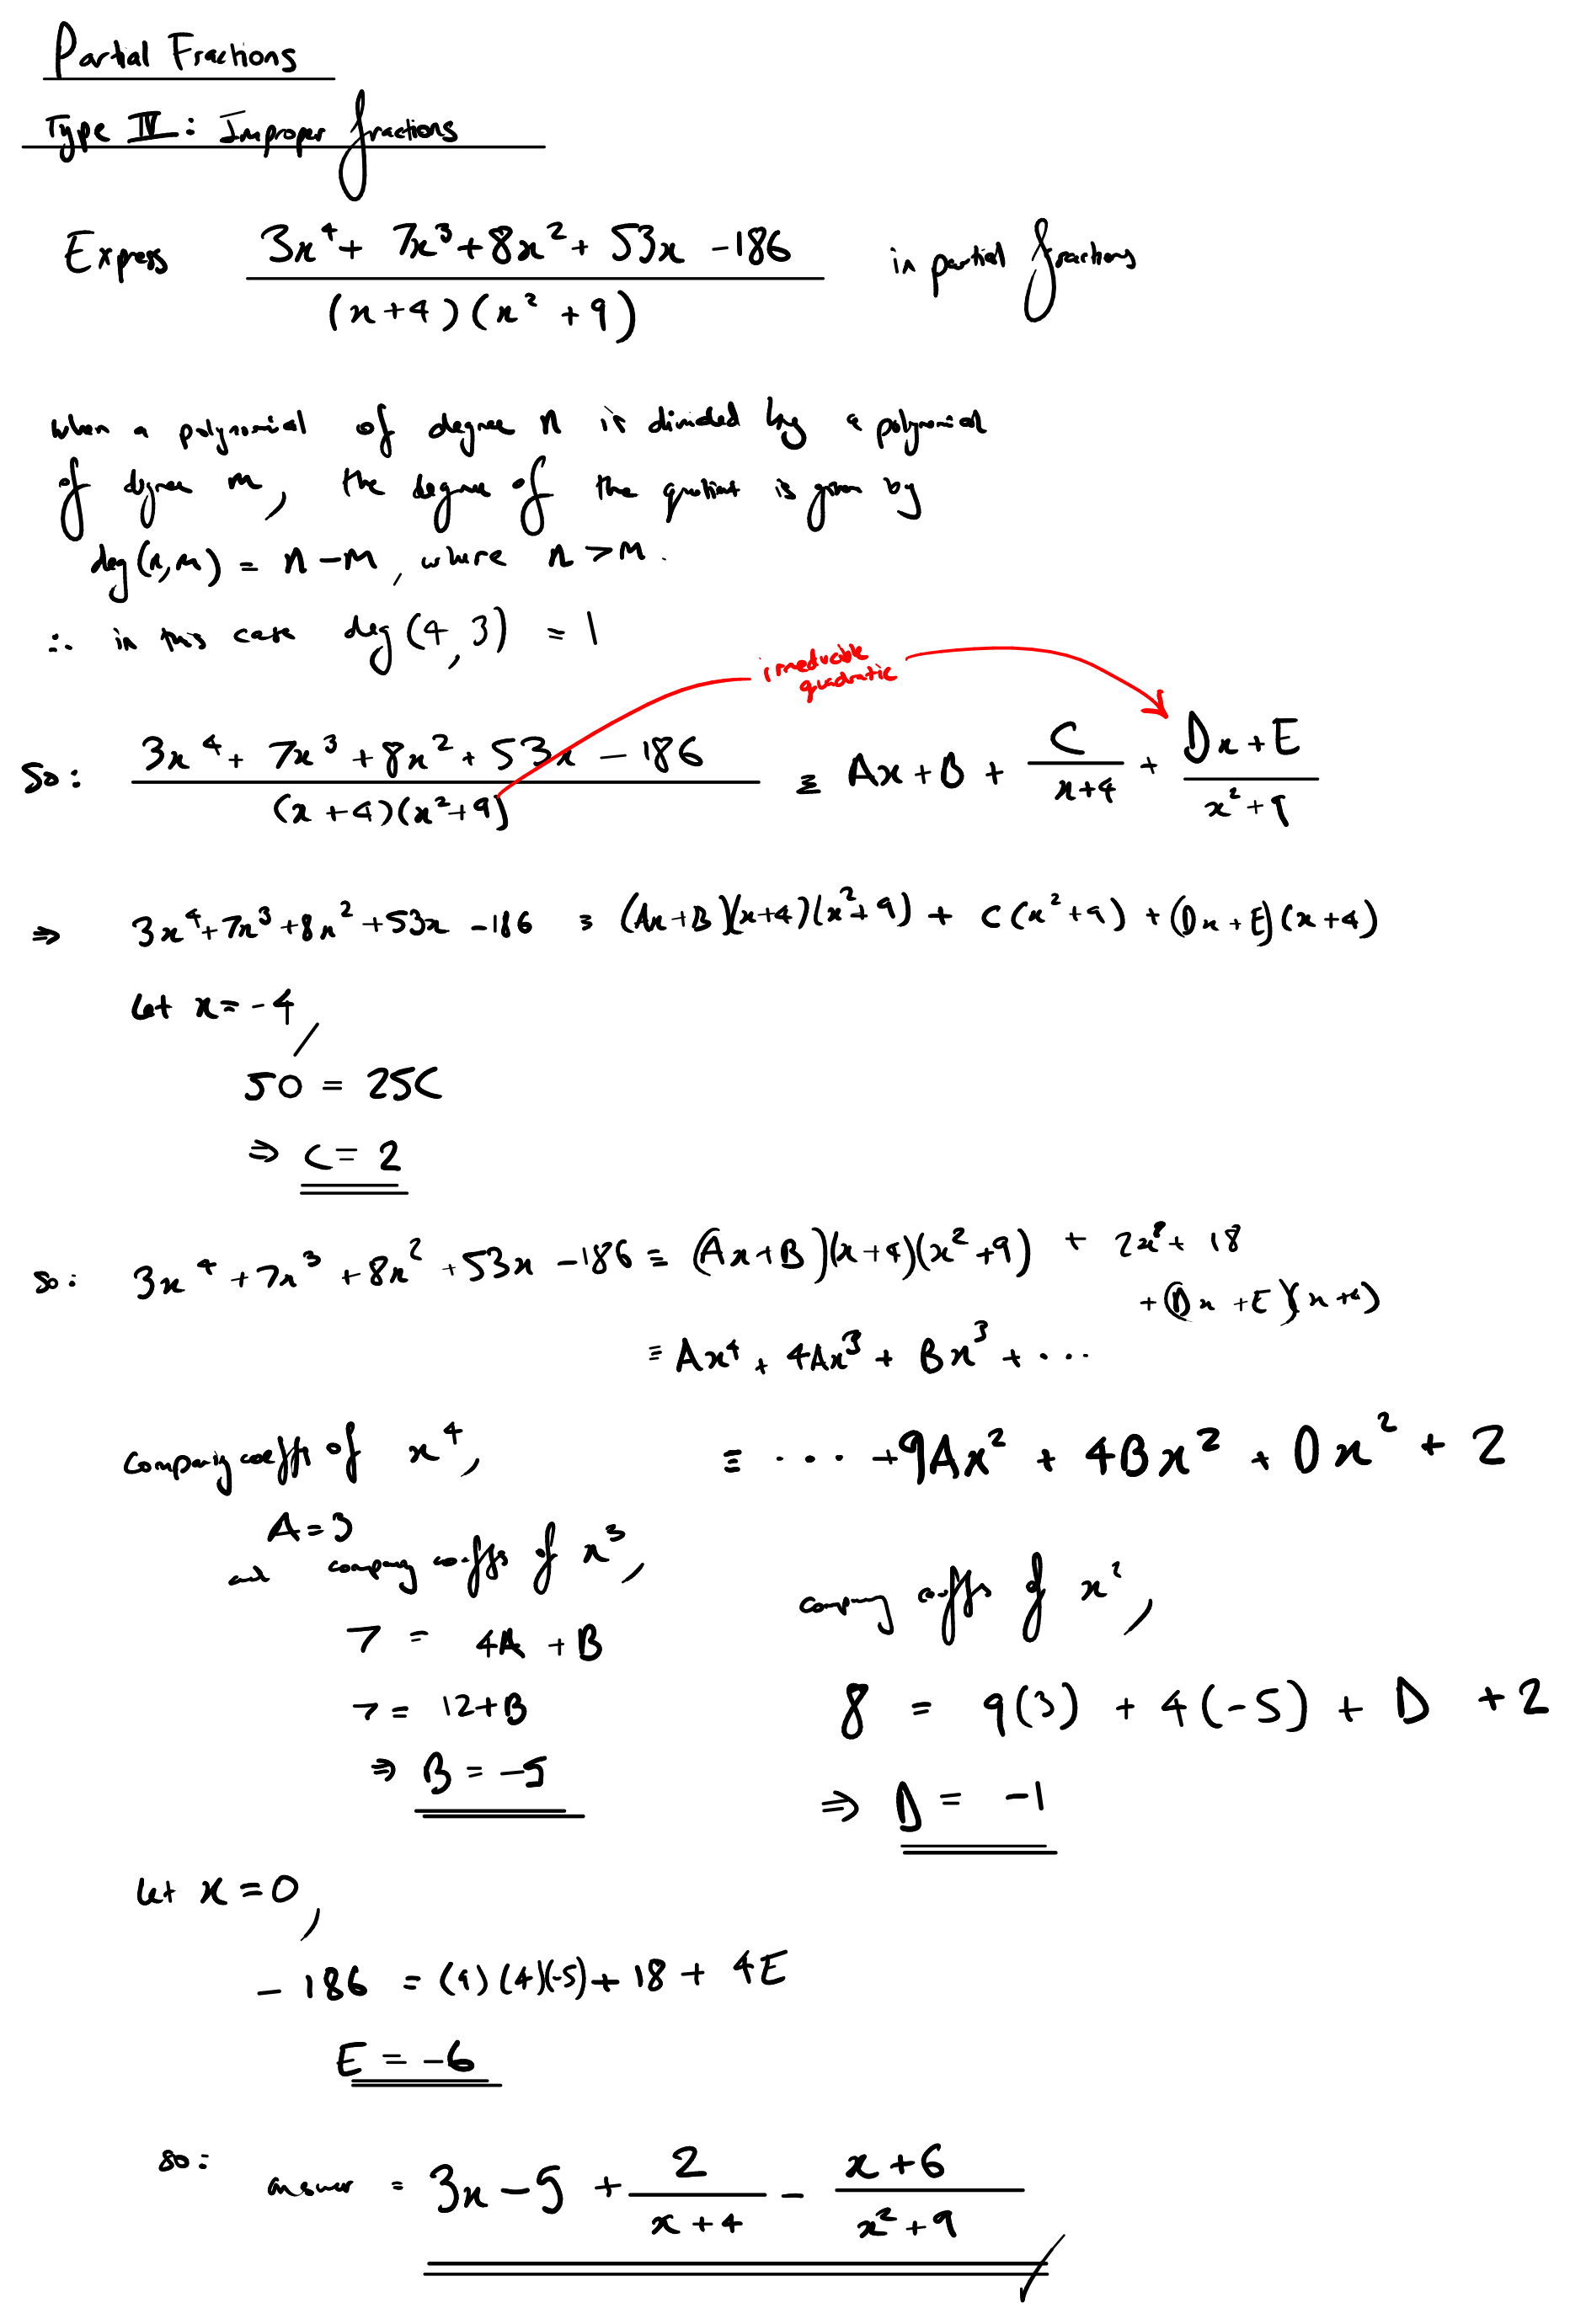 Partial Fractions
Type IV: Improper fractions
Express (3x⁴ + 7x³ + 8x² + 53x - 186) / ((x+4)(x²+9)) in partial fractions
when a polynomial of degree n is divided by a polynomial
of degree m, the degree of the quotient is given by
deg(n,m) = n - m, where n > m.
∴ in this case deg(4,3) = 1
irreducible
quadratic
So: (3x⁴ + 7x³ + 8x² + 53x - 186) / ((x+4)(x²+9)) ≡ Ax + B + C/(x+4) + (Dx+E)/(x²+9)
⇒ 3x⁴+7x³+8x²+53x-186 ≡ (Ax+B)(x+4)(x²+9) + C(x²+9) + (Dx+E)(x+4)
let x = -4,
50 = 25C
⇒ C = 2
So: 3x⁴ + 7x³ + 8x² + 53x - 186 ≡ (Ax+B)(x+4)(x²+9) + 2x² + 18
+ (Dx+E)(x+4)
≡ Ax⁴ + 4Ax³ + Bx³ + ...
comparing coeffs of x⁴, ≡ ... +9Ax² + 4Bx² + Dx² + 2
A = 3
and comparing coeffs of x³,
comparing coeffs of x²,
7 = 4A + B
7 = 12 + B
8 = 9(3) + 4(-5) + D + 2
⇒ B = -5
⇒ D = -1
let x = 0,
- 186 = (9)(4)(-5) + 18 + 4E
E = -6
so: answer = 3x - 5 + 2/(x+4) - (x+6)/(x²+9) ✓